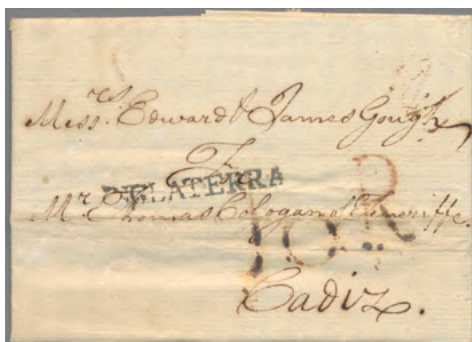 Messrs. Edward & James Gough
For
YNGLATERRA
Mr. Thomas Cologan of Teneriffe.
10 R
Cadiz.